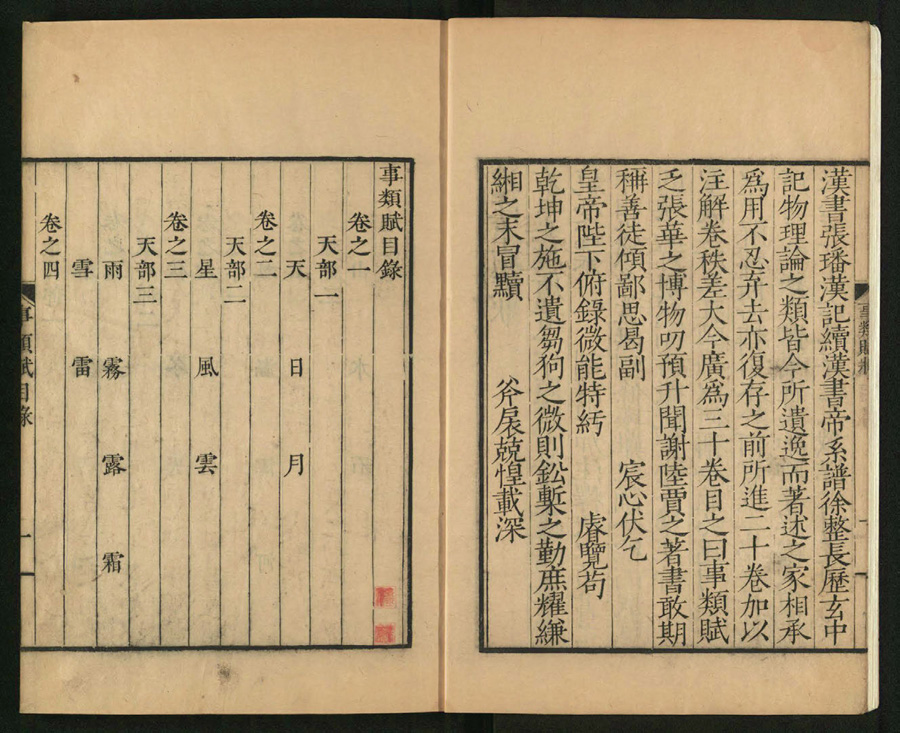 漢書張璠漢記續漢書帝系譜徐整長歷玄中
記物理論之類皆今所遺逸而著述之家相承
爲用不忍弃去亦復存之前所進二十卷加以
注解卷秩差大今廣爲三十卷目之曰事類賦
乏張華之博物叨預升聞謝陸賈之著書敢期
稱善徒傾鄙思曷副 宸心伏乞
皇帝陛下俯錄微能特紆 睿覽茍
乾坤之施不遺芻狗之微則鈆槧之勤庶耀縑
緗之末冒黷 斧扆兢惶載深
事類賦目錄
卷之一
天部一
天 日 月
卷之二
天部二
星 風 雲
卷之三
天部三
雨 霧 露 霜
雪 雷
卷之四
事類賦目錄 一